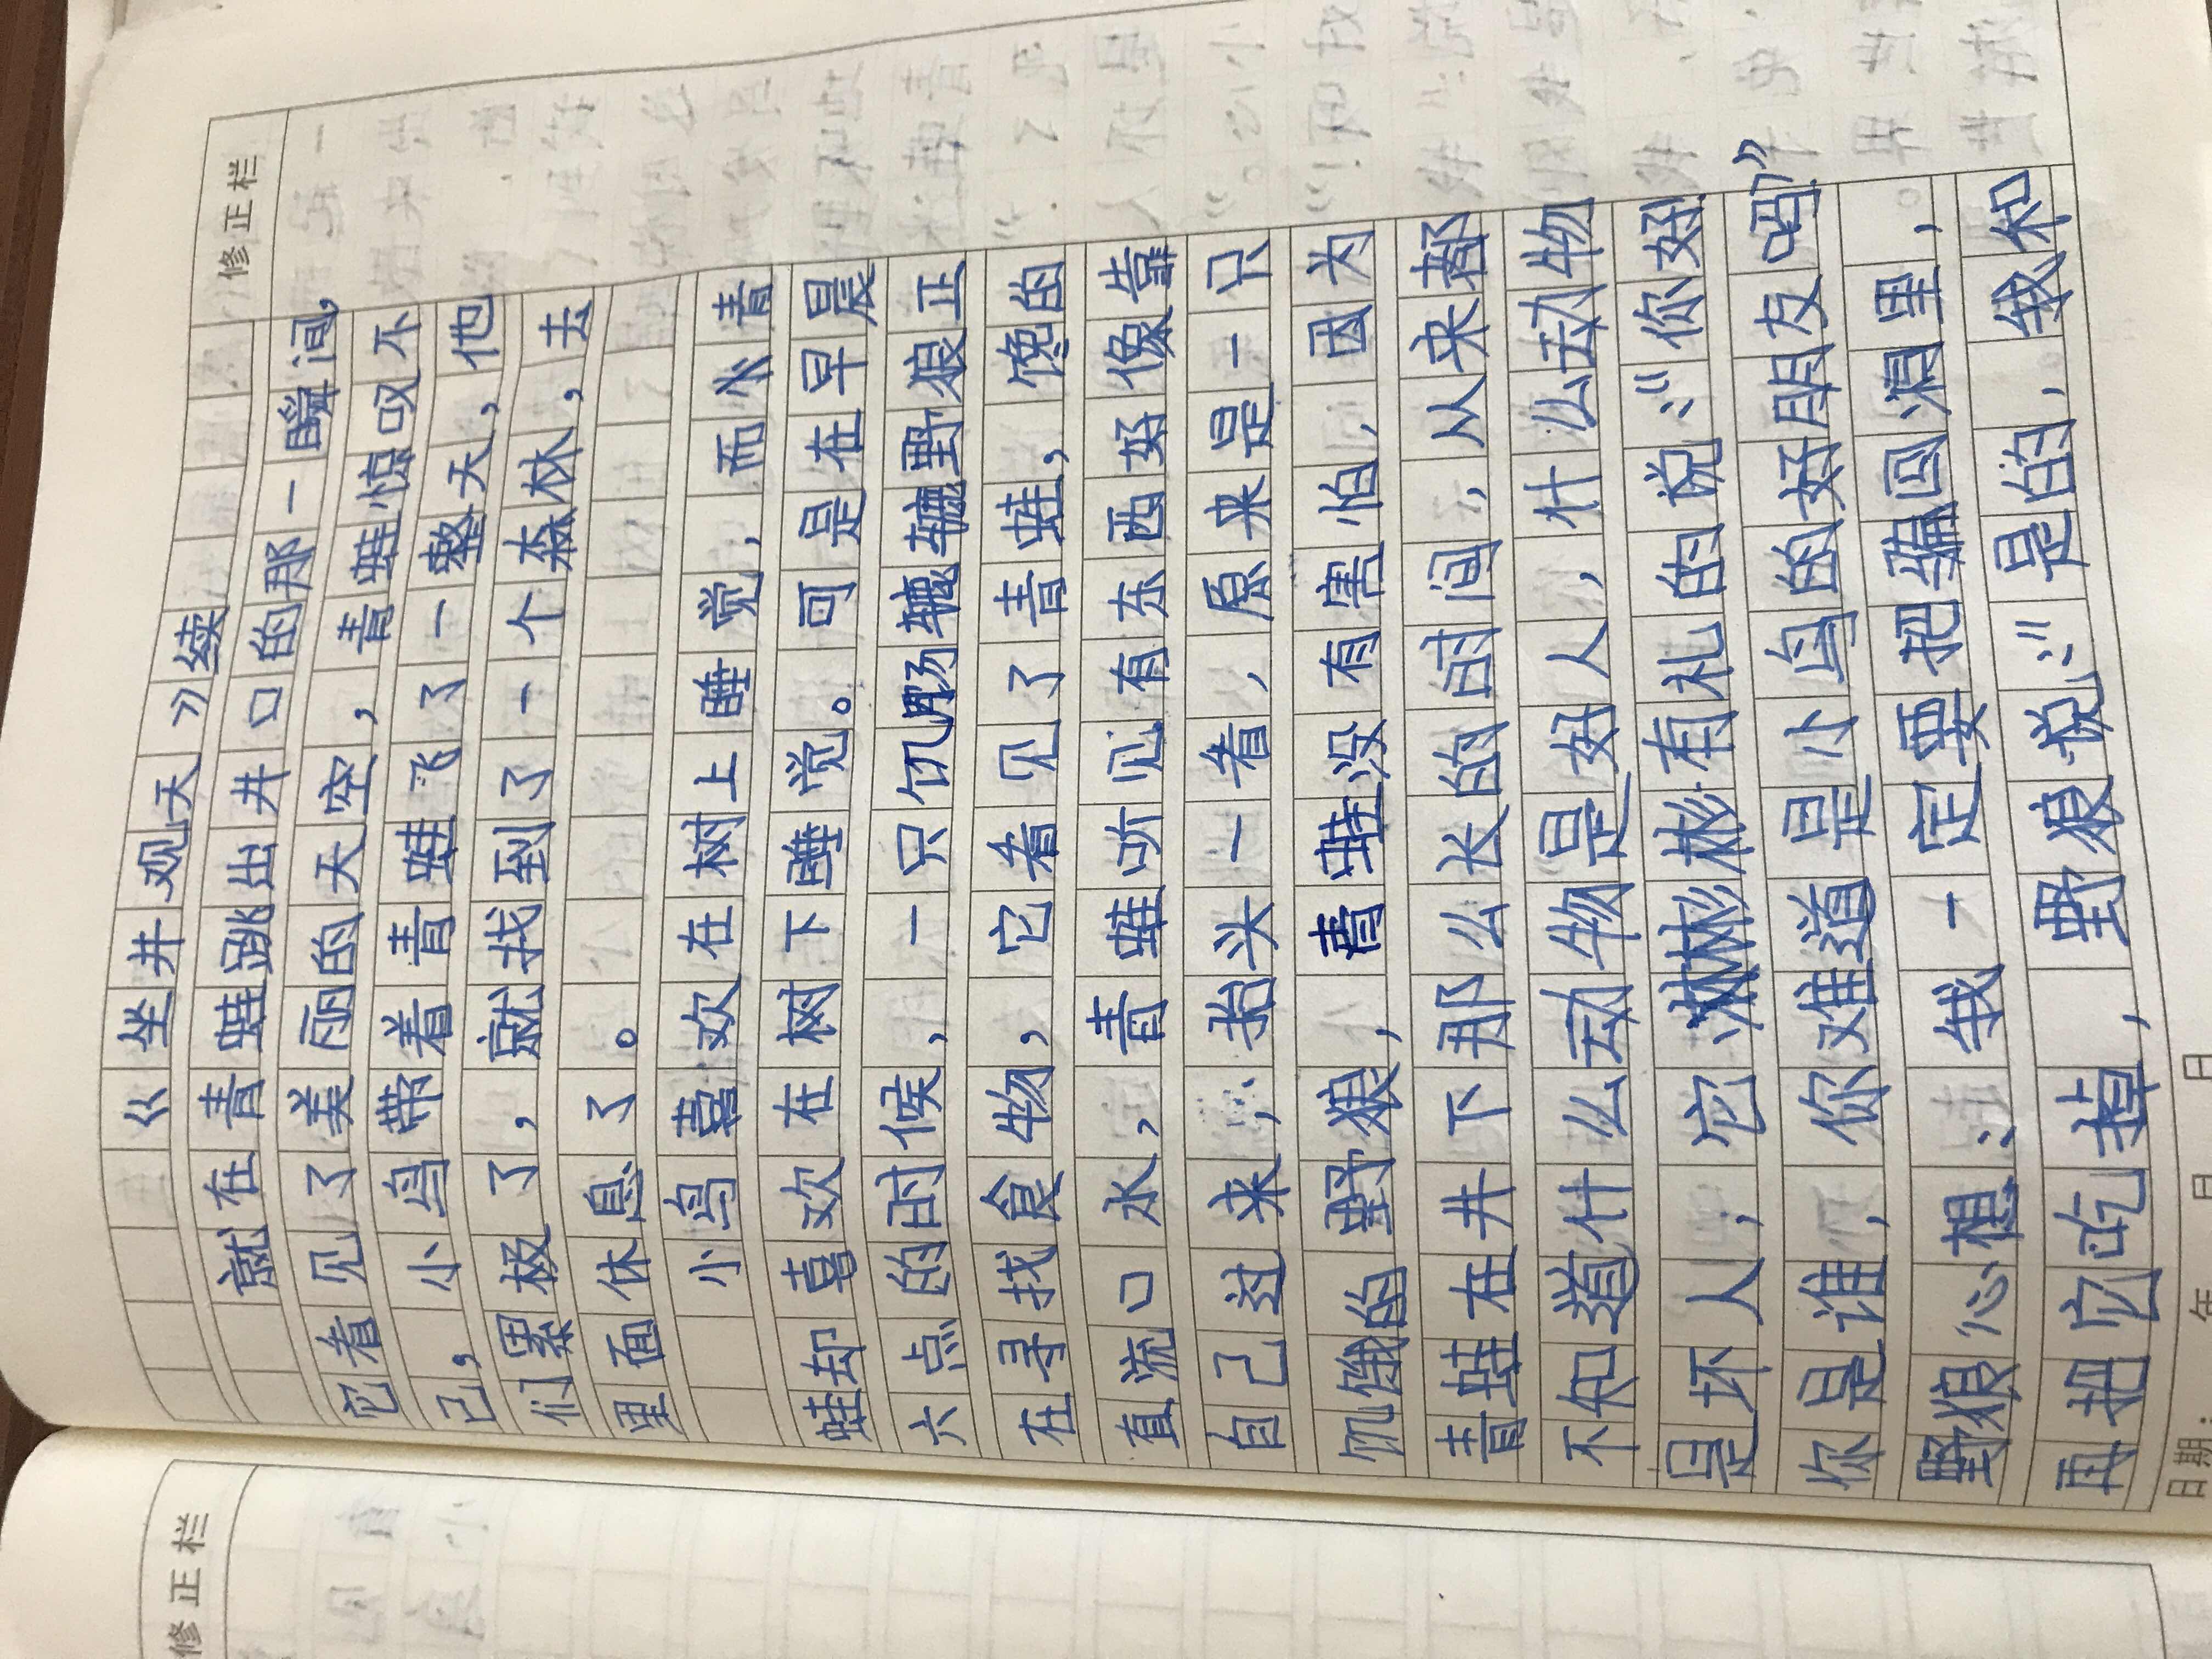 修正栏
《坐井观天》续
就在青蛙跳出井口的那一瞬间,
它看见了美丽的天空,青蛙惊叹不
已,小鸟带着青蛙飞了一整天,他
们累极了,就找到了一个森林,去
里面休息了。
小鸟喜欢在树上睡觉,而小青
蛙却喜欢在树下睡觉。可是在早晨
六点的时候,一只饥肠辘辘野狼正
在寻找食物,它看见了青蛙,馋的
直流口水,青蛙听见有东西好像靠
自己过来,抬头一看,原来是一只
饥饿的野狼,青蛙没有害怕,因为
青蛙在井下那么长的时间,从来都
不知道什么动物是好人,什么动物
是坏人,它彬彬有礼的说:“你好
你是谁,你难道是小鸟的好朋友吗”
野狼心想:我一定要把骗回洞里,
再把它吃掉,野狼说:“是的,我和
日期: 年 月 日
修正栏